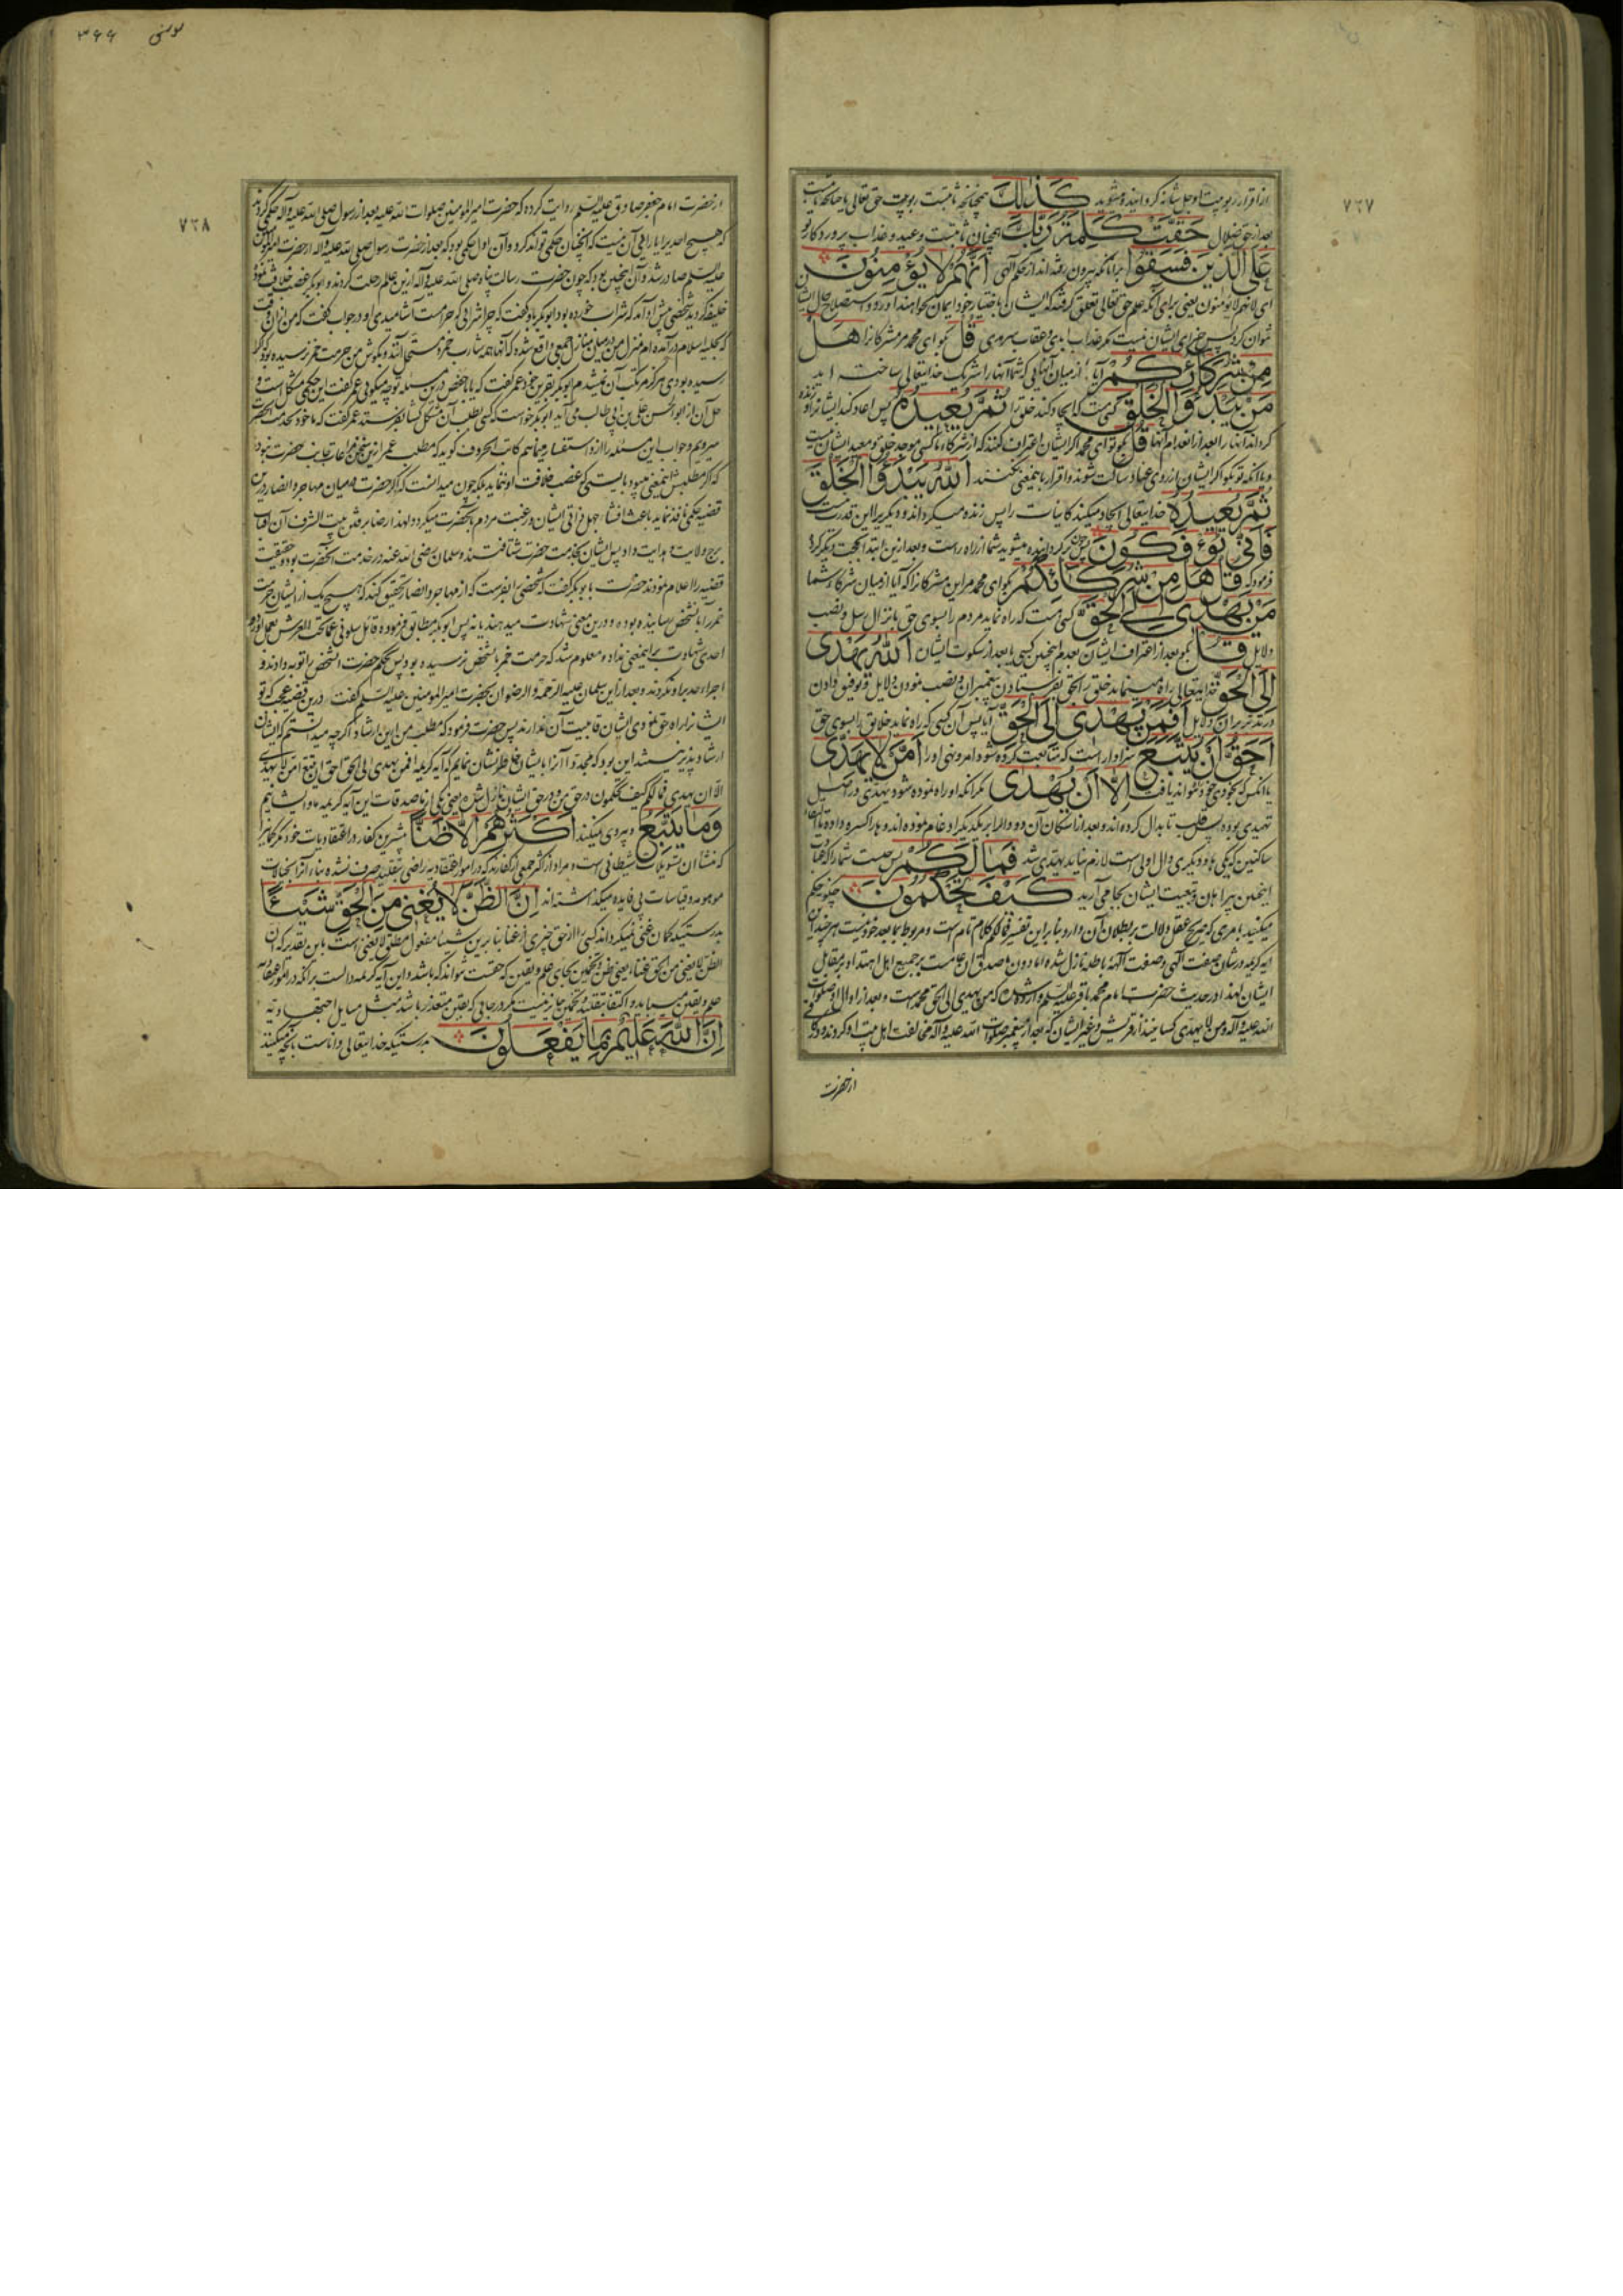 ۷۲۷
از اقرار ربوبیت او جل شانه گردانیده میشوید كَذٰلِكَ همچنانچه ثابتست ربوبیت حق تعالی یا چنانچه ثابتست
بعد از حق ضلال حَقَّتْ كَلِمَةُ رَبِّكَ همچنان ثابتست وعید و عذاب پروردگار تو
عَلَى الَّذِينَ فَسَقُوا بر آنانکه بیرون رفته‌اند از حکم الهی أَنَّهُمْ لَا يُؤْمِنُونَ
ای لانهم لا یؤمنون یعنی برای آنکه علم حق تعالی تعلق گرفته که ایشان باختیار خود ایمان نخواهند آورد و استصلاح حال ایشان
نتوان کرد پس جزای ایشان نیست مگر عذاب ابدی و عقاب سرمدی قُلْ بگو ای محمد مر مشرکانرا هَلْ
مِنْ شُرَكَائِكُمْ آیا از میان آنهایی که شما آنها را شریک خدایتعالی ساخته اید
مَنْ يَبْدَؤُا الْخَلْقَ کسی هست که ایجاد کند خلق را ثُمَّ يُعِيدُهُ پس اعاده کند ایشانرا و زنده
گرداند آنها را بعد از انعدام آنها قُلْ بگو تو ای محمد اگر ایشان اعتراف کنند که از شرکاء ما کسی موجد خلق و معید ایشان نیست
و یا آنکه تو بگو اگر ایشان از روی عناد ساکت شوند و اقرار باینمعنی نکنند اللَّهُ يَبْدَؤُا الْخَلْقَ
ثُمَّ يُعِيدُهُ خدایتعالی ایجاد میکند کاینات را پس زنده میگرداند و دیگریرا این قدرت نیست
فَأَنَّى تُؤْفَكُونَ پس چون گردانیده میشوید شما از راه راست و بعد ازین ابتدا بحجت دیگر کرده
فرمود که قُلْ هَلْ مِنْ شُرَكَائِكُمْ بگو ای محمد مر این مشرکانرا که آیا از میان شرکاء شما
مَنْ يَهْدِي إِلَى الْحَقِّ کسی هست که راه نماید مردم را بسوی حق بانزال رسل و نصب
دلایل قُلْ بگو بعد از اعتراف ایشان بعدم اینچنین کسی یا بعد از سکوت ایشان اللَّهُ يَهْدِي
إِلَى الْحَقِّ خدایتعالی راه مینماید خلق را بحق بفرستادن پیغمبران و نصب نمودن دلایل و توفیق دادن
در تدبر مران دلایل أَفَمَنْ يَهْدِي إِلَى الْحَقِّ آیا پس آن کسی که راه نماید خلایق را بسوی حق
أَحَقُّ أَنْ يُتَّبَعَ سزاوار است که متابعت کرده شود امر و نهی او را أَمَّنْ لَا يَهِدِّي
یا آنکس که بخودی خود نتواند یافت إِلَّا أَنْ يُهْدَى مگر آنکه او راه نموده شود و یهدی در اصل
یهتدی بوده پس قلب تا بدال کرده‌اند و بعد از اسکان آن دو دال را بر یکدیگر ادغام نموده‌اند و ها را کسره داده تا التقاء
ساکنین که یکی ها و دیگری دال اول است لازم نیاید یهدی شد فَمَا لَكُمْ پس چیست شما را که متابعت
اینچنین پیر و تبعیت ایشان بجا می‌آرید كَيْفَ تَحْكُمُونَ چگونه حکم
میکنید بامری که صریح عقل دلالت بر بطلان آن دارد و بنا بر این تفسیر فما لکم کلام تام است و مربوط بما بعد خود نیست هرچند این
آیه کریمه در شان صفت الهی و صفت آلهه باطله نازل شده اما دون مصدق آن عامست بر جمیع اهل اهتدا و بر مقابل
ایشان لهذا در حدیث حضرت امام محمد باقر علیه السلم وارد شده که من یهدی الی الحق محمد است و بعد از او آل او صلوات
الله علیه و آله و من لا یهدی کسانیند از قریش و غیر ایشان که بعد از پیغمبر صلوات الله علیه و آله مخالفت اهل بیت او کردند و در کافی
از حضرت
یونس ۳۶۶
۷۲۸
از حضرت امام جعفر صادق علیه السلم روایت کرده که حضرت امیر المؤمنین صلوات الله علیه بعد از رسول صلی الله علیه و آله حکمی کردند
که هیچ احدیرا یارای آن نیست که آنچنان حکمی تواند کرد و آن اول حکمی بود که بعد از حضرت رسول صلی الله علیه و آله از حضرت امیر المؤمنین
علیه السلم صادر شد و آن اینچنین بود که چون حضرت رسالت پناه صلی الله علیه و آله ازین عالم رحلت کردند و ابوبکر غصب خلافت نموده
خلیفه گردید شخصی پیش او آمد که شراب خورده بود ابوبکر باو گفت که چرا شرابی که حرامست آشامیدی او در جواب گفت که من از آن وقت
که بحلیه اسلام درآمده‌ام منزل من در میان منازل جمعی واقع شده که آنها همه شارب خمر و مستحل آنند و بگوش من حرمت خمر نرسیده بود که اگر
رسیده بودی هرگز مرتکب آن نمیشدم ابوبکر بقرین خود عمر گفت که یا ابا حفص درین مسئله تو چه میگویی عمر گفت این حکمی مشکل است و
حل آن از ابو الحسن علی بن ابی طالب می‌آید ابوبکر خواست که کسی بطلب آن مشکل گشا بفرستد عمر گفت که ما خود بخدمت حضرت
میرویم و جواب این مسئله را ازو استفسار مینماییم کاتب الحروف گوید که مطلب عمر ازین سخن مراعات جانب حضرت نبود
که اگر مطلبش اینمعنی میبود بایستی که غصب خلافت او ننماید بلکه چون میدانست که اگر حضرت در میان مهاجر و انصار درین
قضیه حکمی نافذ نماید باعث افشاء جهل ذاتی ایشان و رغبت مردم بآنحضرت میگردد و لهذا رضا برفتن بیت الشرف آن آفتاب
برج ولایت و هدایت داد پس ایشان بخدمت حضرت شتافتند و سلمان رضی الله عنه در خدمت آنحضرت بود و حقیقت
قضیه را اعلام نمودند حضرت بابوبکر گفت که شخصی را بفرست که از مهاجر و انصار تحقیق کند که هیچ یک از ایشان حرمت
خمر را باین شخص رسانیده بوده و درین معنی شهادت میدهند یا نه پس ابوبکر مطابق فرموده قائل سلونی عما تحت العرش بعمل آورد و
احدی شهادت بر اینمعنی نداد و معلوم شد که حرمت خمر باین شخص نرسیده بود پس بحکم حضرت آنشخص را توبه دادند و
اجراء حد بر او نکردند و بعد ازین سلمان علیه الرحمة و الرضوان بحضرت امیر المؤمنین علیه السلم گفت درین قضیه عجب که تو
ایشانرا راه حق نمودی ایشان قابلیت آن ندارند پس حضرت فرمود که مطلب من این ارشاد اگر چه میدانستم که ایشان
ارشاد پذیر نیستند این بود که مجددا آنرا بایشان خاطر نشان نمایم که آیه کریمه افمن یهدی الی الحق احق ان یتبع امن لا یهدی
الا ان یهدی فما لکم کیف تحکمون در حق من و در حق ایشان نازل شده یعنی یکی از ماصدقات این آیه کریمه ما و ایشانیم
وَمَا يَتَّبِعُ و پیروی نمیکنند أَكْثَرُهُمْ إِلَّا ظَنًّا بیشترین کفار در اعتقادیات خود مگر گمانرا
که منشأ آن تسویلات شیطانی است و مراد از اکثر جمعی از کفارند که در امور اعتقادیه راضی بتقلید صرف نشده بناء آنرا بخیالات
موهومه و قیاسات بی فایده میگذاشته‌اند إِنَّ الظَّنَّ لَا يُغْنِي مِنَ الْحَقِّ شَيْئًا
بدرستیکه گمان غنی نمیگرداند کسی را از حق چیزی از غنا بنا برین شیئا مفعول مطلق لا یغنی است باین تقدیر که ان
الظن لا یغنی من الحق غناء یعنی ظن و تخمین بجای علم و یقین که حقست نتواند که باشد و این آیه کریمه دالست بر آنکه در امور اعتقادیه
علم و یقین میباید و اکتفا بتقلید و تخمین جایز نیست مگر در جایی که یقین متعذر باشد مثل مسایل اجتهادیه
إِنَّ اللَّهَ عَلِيمٌ بِمَا يَفْعَلُونَ بدرستیکه خدایتعالی داناست بآنچه میکنند